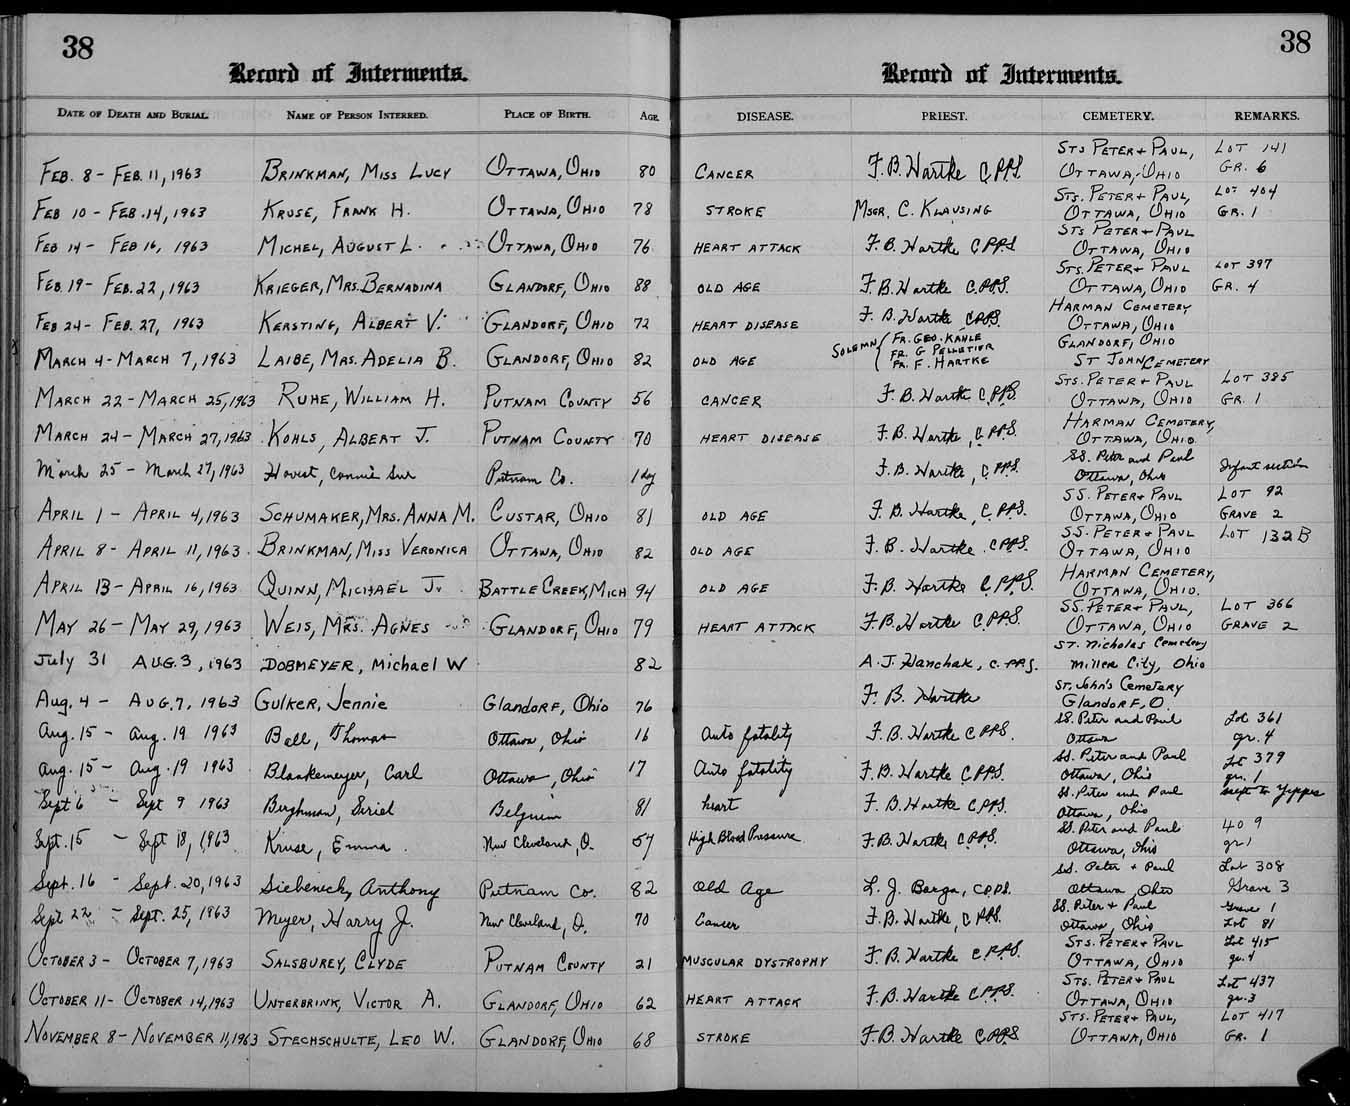 38
38
Record of Interments.
Record of Interments.
DATE OF DEATH AND BURIAL. NAME OF PERSON INTERRED. PLACE OF BIRTH. AGE. DISEASE. PRIEST. CEMETERY. REMARKS.
FEB. 8 - FEB. 11, 1963 BRINKMAN, MISS LUCY OTTAWA, OHIO 80 CANCER F. B. Hartke C.PP.S STS PETER + PAUL, OTTAWA, OHIO LOT 141 GR. 6
FEB 10 - FEB. 14, 1963 KRUSE, FRANK H. OTTAWA, OHIO 78 STROKE MSGR. C. KLAUSING STS. PETER + PAUL, OTTAWA, OHIO LOT 404 GR. 1
FEB 14 - FEB 16, 1963 MICHEL, AUGUST L. OTTAWA, OHIO 76 HEART ATTACK F. B. Hartke C.PP.S STS PETER + PAUL OTTAWA, OHIO
FEB. 19 - FEB. 22, 1963 KRIEGER, MRS. BERNADINA GLANDORF, OHIO 88 OLD AGE F. B. Hartke C.PP.S. STS. PETER + PAUL OTTAWA, OHIO LOT 397 GR. 4
FEB 24 - FEB. 27, 1963 KERSTING, ALBERT V. GLANDORF, OHIO 72 HEART DISEASE F. B. Hartke C.PP.S. HARMAN CEMETERY OTTAWA, OHIO
MARCH 4 - MARCH 7, 1963 LAIBE, MRS. ADELIA B. GLANDORF, OHIO 82 OLD AGE SOLEMN { FR. GEO. KAHLE FR. G PELLETIER FR. F. HARTKE GLANDORF, OHIO ST JOHN CEMETERY
MARCH 22 - MARCH 25, 1963 RUHE, WILLIAM H. PUTNAM COUNTY 56 CANCER F. B. Hartke C.PP.S. STS. PETER + PAUL OTTAWA, OHIO LOT 385 GR. 1
MARCH 24 - MARCH 27, 1963 KOHLS, ALBERT J. PUTNAM COUNTY 70 HEART DISEASE F. B. Hartke, C.PP.S. HARMAN CEMETERY, OTTAWA, OHIO.
March 25 - March 27, 1963 Hovest, Connie Sue Putnam Co. 1 day F. B. Hartke, C.PP.S. SS. Peter and Paul Ottawa, Ohio Infant section
APRIL 1 - APRIL 4, 1963 SCHUMAKER, MRS. ANNA M. CUSTAR, OHIO 81 OLD AGE F. B. Hartke, C.PP.S. SS. PETER + PAUL OTTAWA, OHIO LOT 92 GRAVE 2
APRIL 8 - APRIL 11, 1963 BRINKMAN, MISS VERONICA OTTAWA, OHIO 82 OLD AGE F. B. Hartke C.PP.S. SS. PETER + PAUL OTTAWA, OHIO LOT 132 B
APRIL 13 - APRIL 16, 1963 QUINN, MICHAEL J. BATTLE CREEK, MICH 94 OLD AGE F. B. Hartke C.PP.S. HARMAN CEMETERY, OTTAWA, OHIO.
MAY 26 - MAY 29, 1963 WEIS, MRS. AGNES GLANDORF, OHIO 79 HEART ATTACK F. B. Hartke C.PP.S SS. PETER + PAUL, OTTAWA, OHIO LOT 366 GRAVE 2
July 31 AUG. 3, 1963 DOBMEYER, Michael W 82 A. J. Hanchak, C.PP.S. ST. Nicholas Cemetery Miller City, Ohio
Aug. 4 - AUG. 7, 1963 GULKER, Jennie GlandorF, Ohio 76 F. B. Hartke ST. John's Cemetery GlandorF, O.
Aug. 15 - Aug. 19 1963 Bell, Thomas Ottawa, Ohio 16 Auto fatality F. B. Hartke C.PP.S. SS. Peter and Paul Ottawa Lot 361 gr. 4
Aug. 15 - Aug. 19 1963 Blankemeyer, Carl Ottawa, Ohio 17 Auto fatality F. B. Hartke C.PP.S. SS. Peter and Paul Ottawa, Ohio Lot 379 gr. 1
Sept 6 - Sept 9 1963 Berghman, Belgium 81 heart F. B. Hartke C.PP.S. SS. Peter and Paul Ottawa, Ohio next to
Sept. 15 - Sept 18, 1963 Kruse, Emma New Cleveland, O. 57 High Blood Pressure F. B. Hartke C.PP.S. SS. Peter and Paul Ottawa, Ohio 409 gr 1
Sept. 16 - Sept. 20, 1963 Siebeneck, Anthony Putnam Co. 82 Old Age L. J. Barga, C.PP.S. SS. Peter + Paul Ottawa Ohio Lot 308 Grave 3
Sept 22 - Sept. 25, 1963 Meyer, Harry J. New Cleveland, O. 70 Cancer F. B. Hartke, C.PP.S. SS. Peter + Paul Ottawa, Ohio Grave 1 Lot 81
OCTOBER 3 - OCTOBER 7, 1963 SALSBUREY, CLYDE PUTNAM COUNTY 21 MUSCULAR DYSTROPHY F. B. Hartke C.PP.S. STS. PETER + PAUL OTTAWA, OHIO Lot 415 gr. 4
OCTOBER 11 - OCTOBER 14, 1963 UNTERBRINK, VICTOR A. GLANDORF, OHIO 62 HEART ATTACK F. B. Hartke C.PP.S. STS. PETER + PAUL OTTAWA, OHIO Lot 437 gr. 3
NOVEMBER 8 - NOVEMBER 11, 1963 STECHSCHULTE, LEO W. GLANDORF, OHIO 68 STROKE F. B. Hartke C.PP.S STS. PETER + PAUL, OTTAWA, OHIO LOT 417 GR. 1